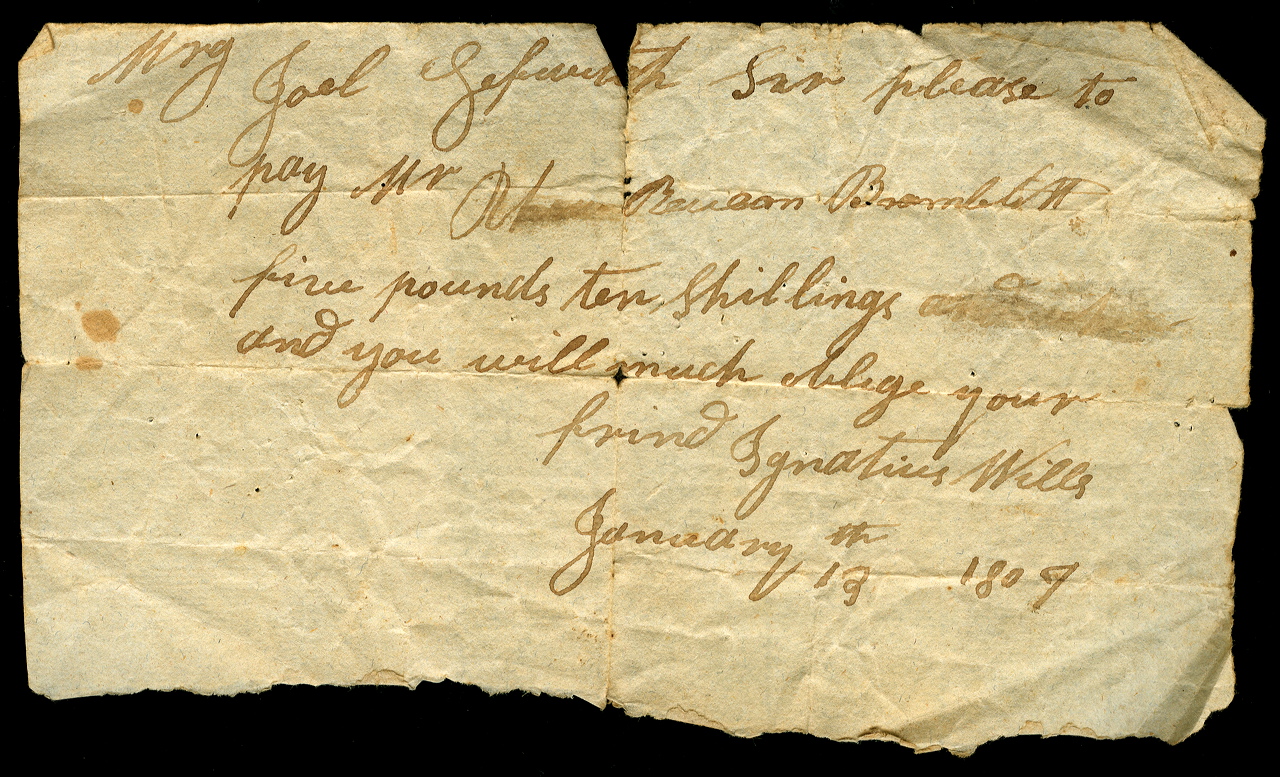 Mrg Joel Sir please to
pay Mr Bramblett
five pounds ten Shillings
and you will much oblege your
frind Ignatius Wills
January 13th 1807